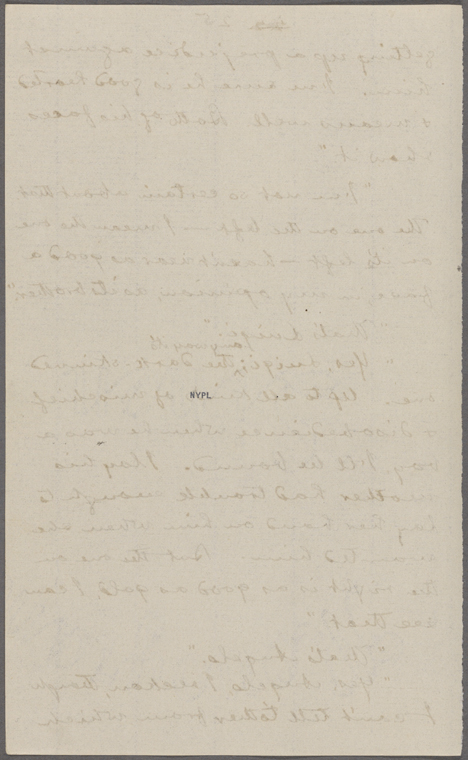 25
getting up a prejudice against
him. I'm sure he is good hearted
& means well. Both of his faces
show it."
"I'm not so certain about that
The one on the left — I mean the one
on its left — hasn't near as good a
face, in my opinion, as its brother."
"That's Luigi."
"Yes, Luigi; anyway it's the dark-skinned
one. Up to all kinds of mischief
& disobedience when he was a
boy, I'll be bound. I lay his
mother had trouble enough to
lay her hand on him when she
wanted him. But the one on
the right is as good as gold, I can
see that."
"That's Angelo."
"Yes, Angelo, I reckon, though
I can't tell t'other from which
NYPL